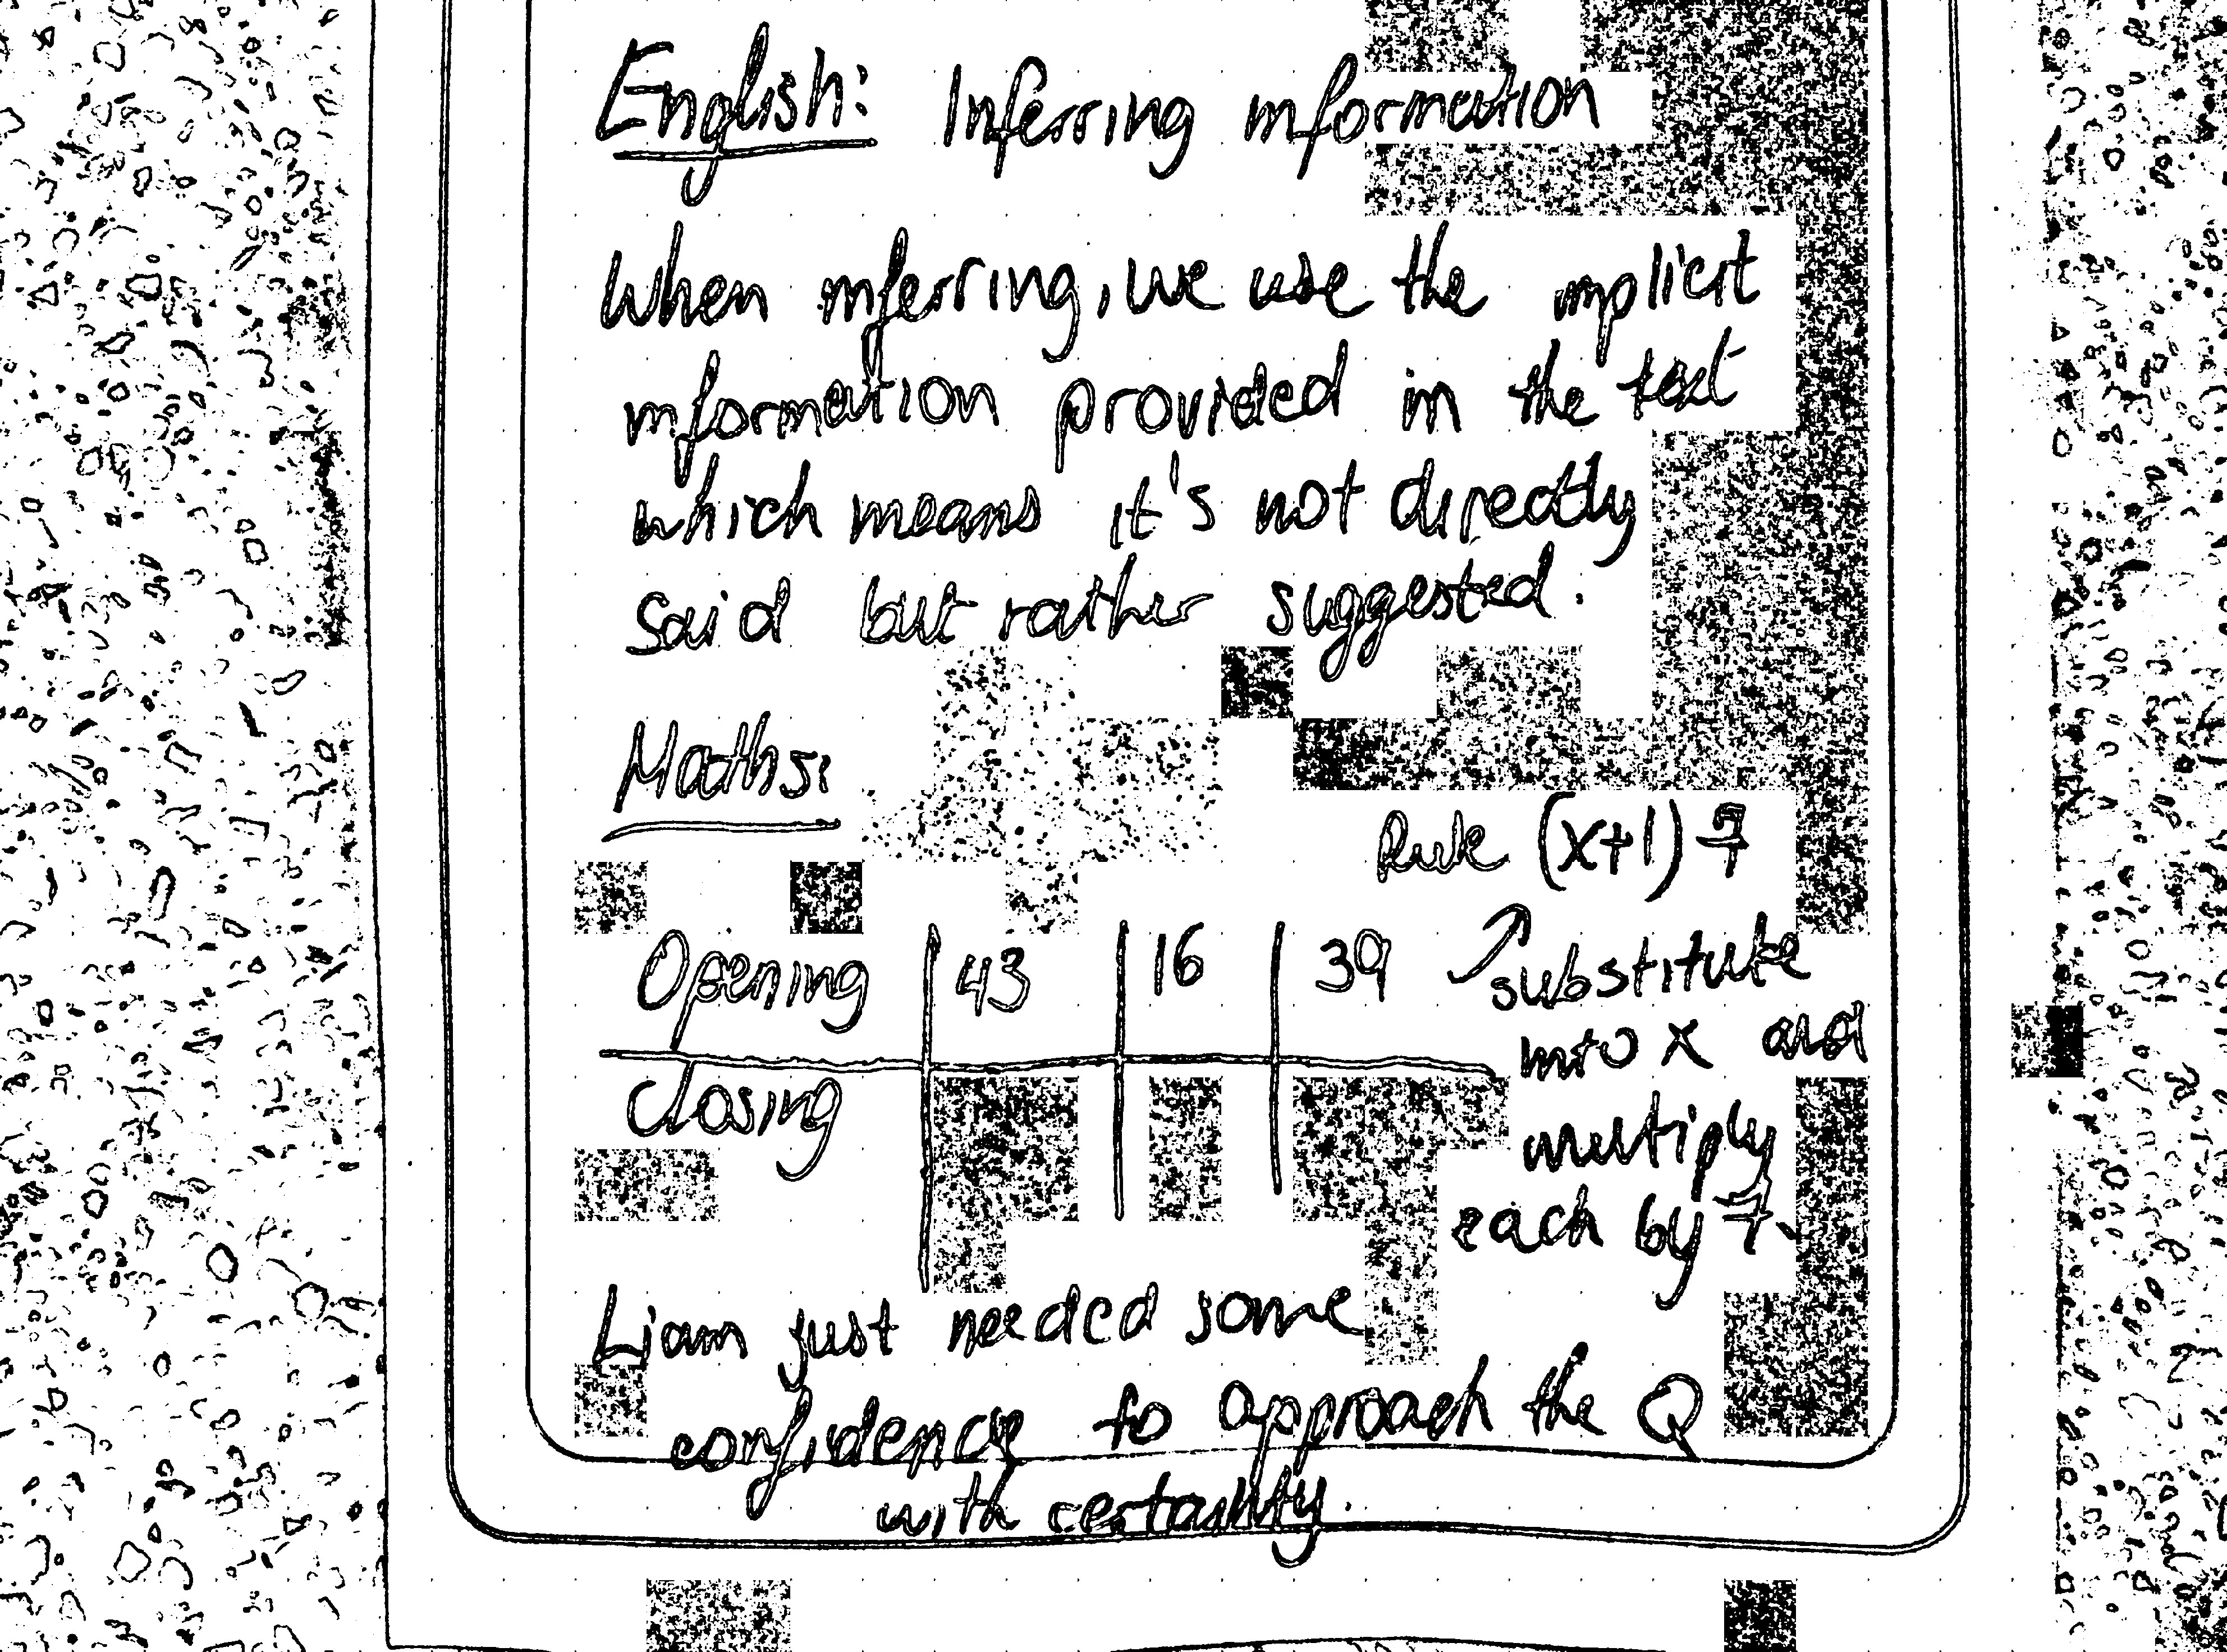 English: Inferring information
When inferring, we use the implicit
information provided in the text
which means it's not directly
said but rather suggested.
Maths:
Rule (x+1) 7
Opening | 43 | 16 | 39
substitute
into x and
Closing
multiply
each by 7.
Liam just needed some
confidence to approach the Q
with certainty.